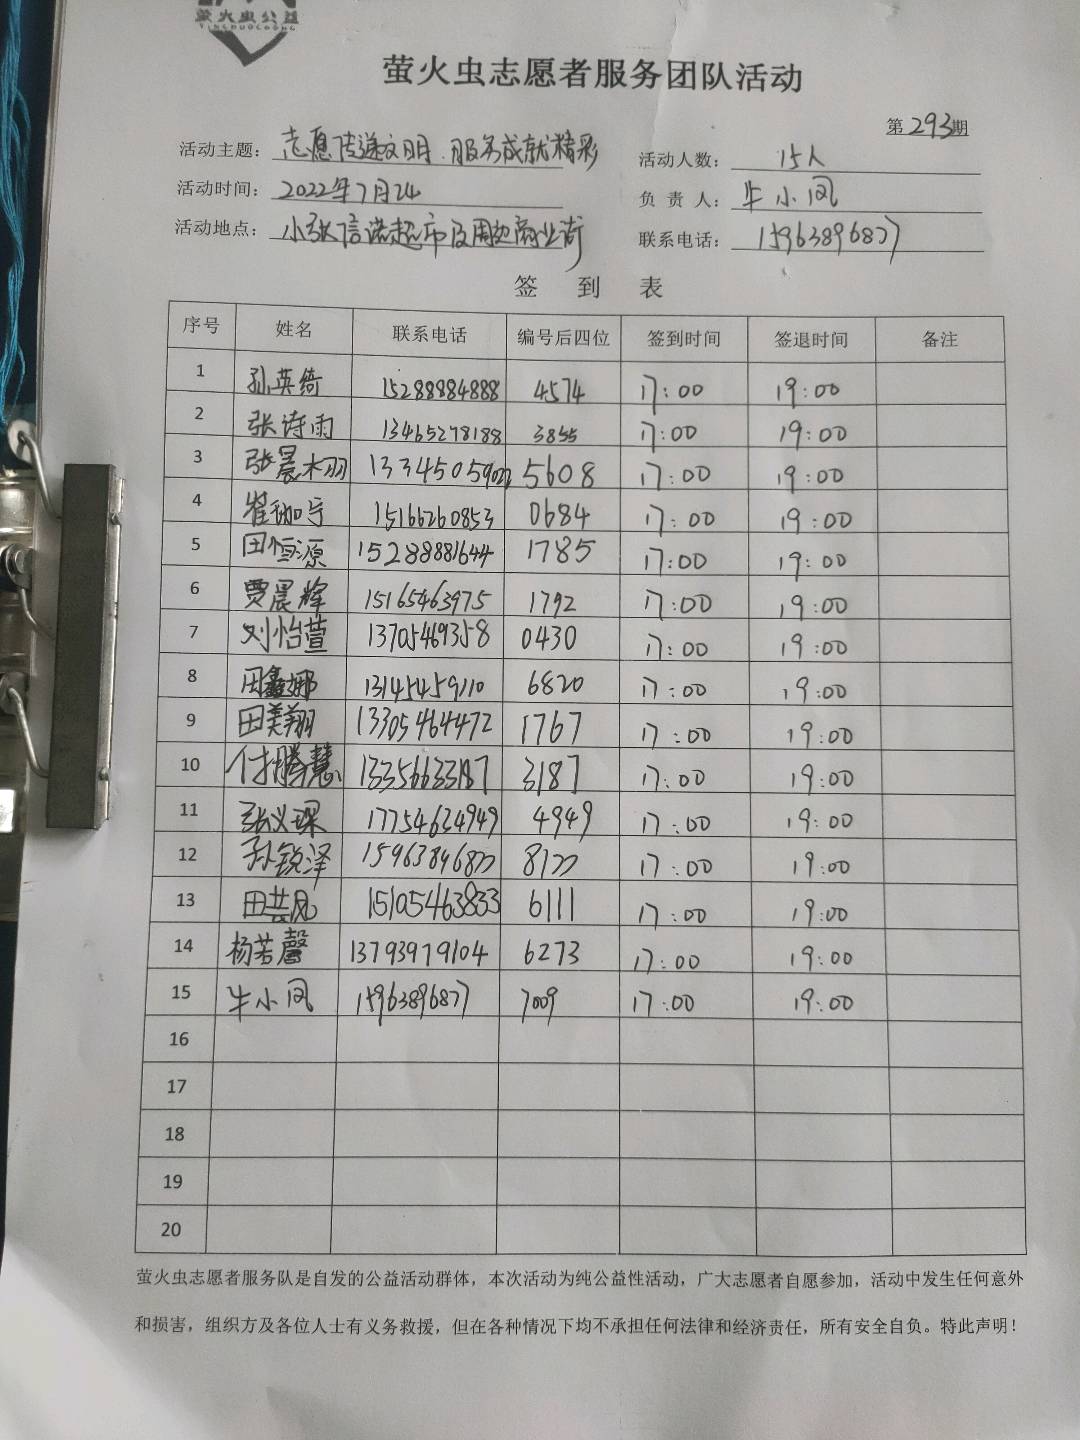 萤火虫公益
YINGHUOCHONG
萤火虫志愿者服务团队活动
第293期
活动主题：志愿传递文明.服务成就精彩 活动人数：15人
活动时间：2022年7月24 负责人：牛小凤
活动地点：小张信诺超市及周边商业街 联系电话：15963896877
签到表
序号 姓名 联系电话 编号后四位 签到时间 签退时间 备注
1 孙英绮 15288884888 4574 17:00 19:00
2 张诗雨 13465278188 3855 17:00 19:00
3 张晨栩 13345059022 5608 17:00 19:00
4 崔珈宁 15166260853 0684 17:00 19:00
5 田恒源 15288881644 1785 17:00 19:00
6 贾晨辉 15165463975 1792 17:00 19:00
7 刘怡萱 13705469358 0430 17:00 19:00
8 田鑫娜 13145459110 6820 17:00 19:00
9 田美翔 13305464472 1767 17:00 19:00
10 付腾慧 13356633187 3187 17:00 19:00
11 张义琛 17754634949 4949 17:00 19:00
12 孙锐泽 17:00 19:00
13 田芸凤 15105463833 6111 17:00 19:00
14 杨若馨 13793979104 6273 17:00 19:00
15 牛小凤 15963896877 7009 17:00 19:00
16
17
18
19
20
萤火虫志愿者服务队是自发的公益活动群体，本次活动为纯公益性活动，广大志愿者自愿参加，活动中发生任何意外
和损害，组织方及各位人士有义务救援，但在各种情况下均不承担任何法律和经济责任，所有安全自负。特此声明！